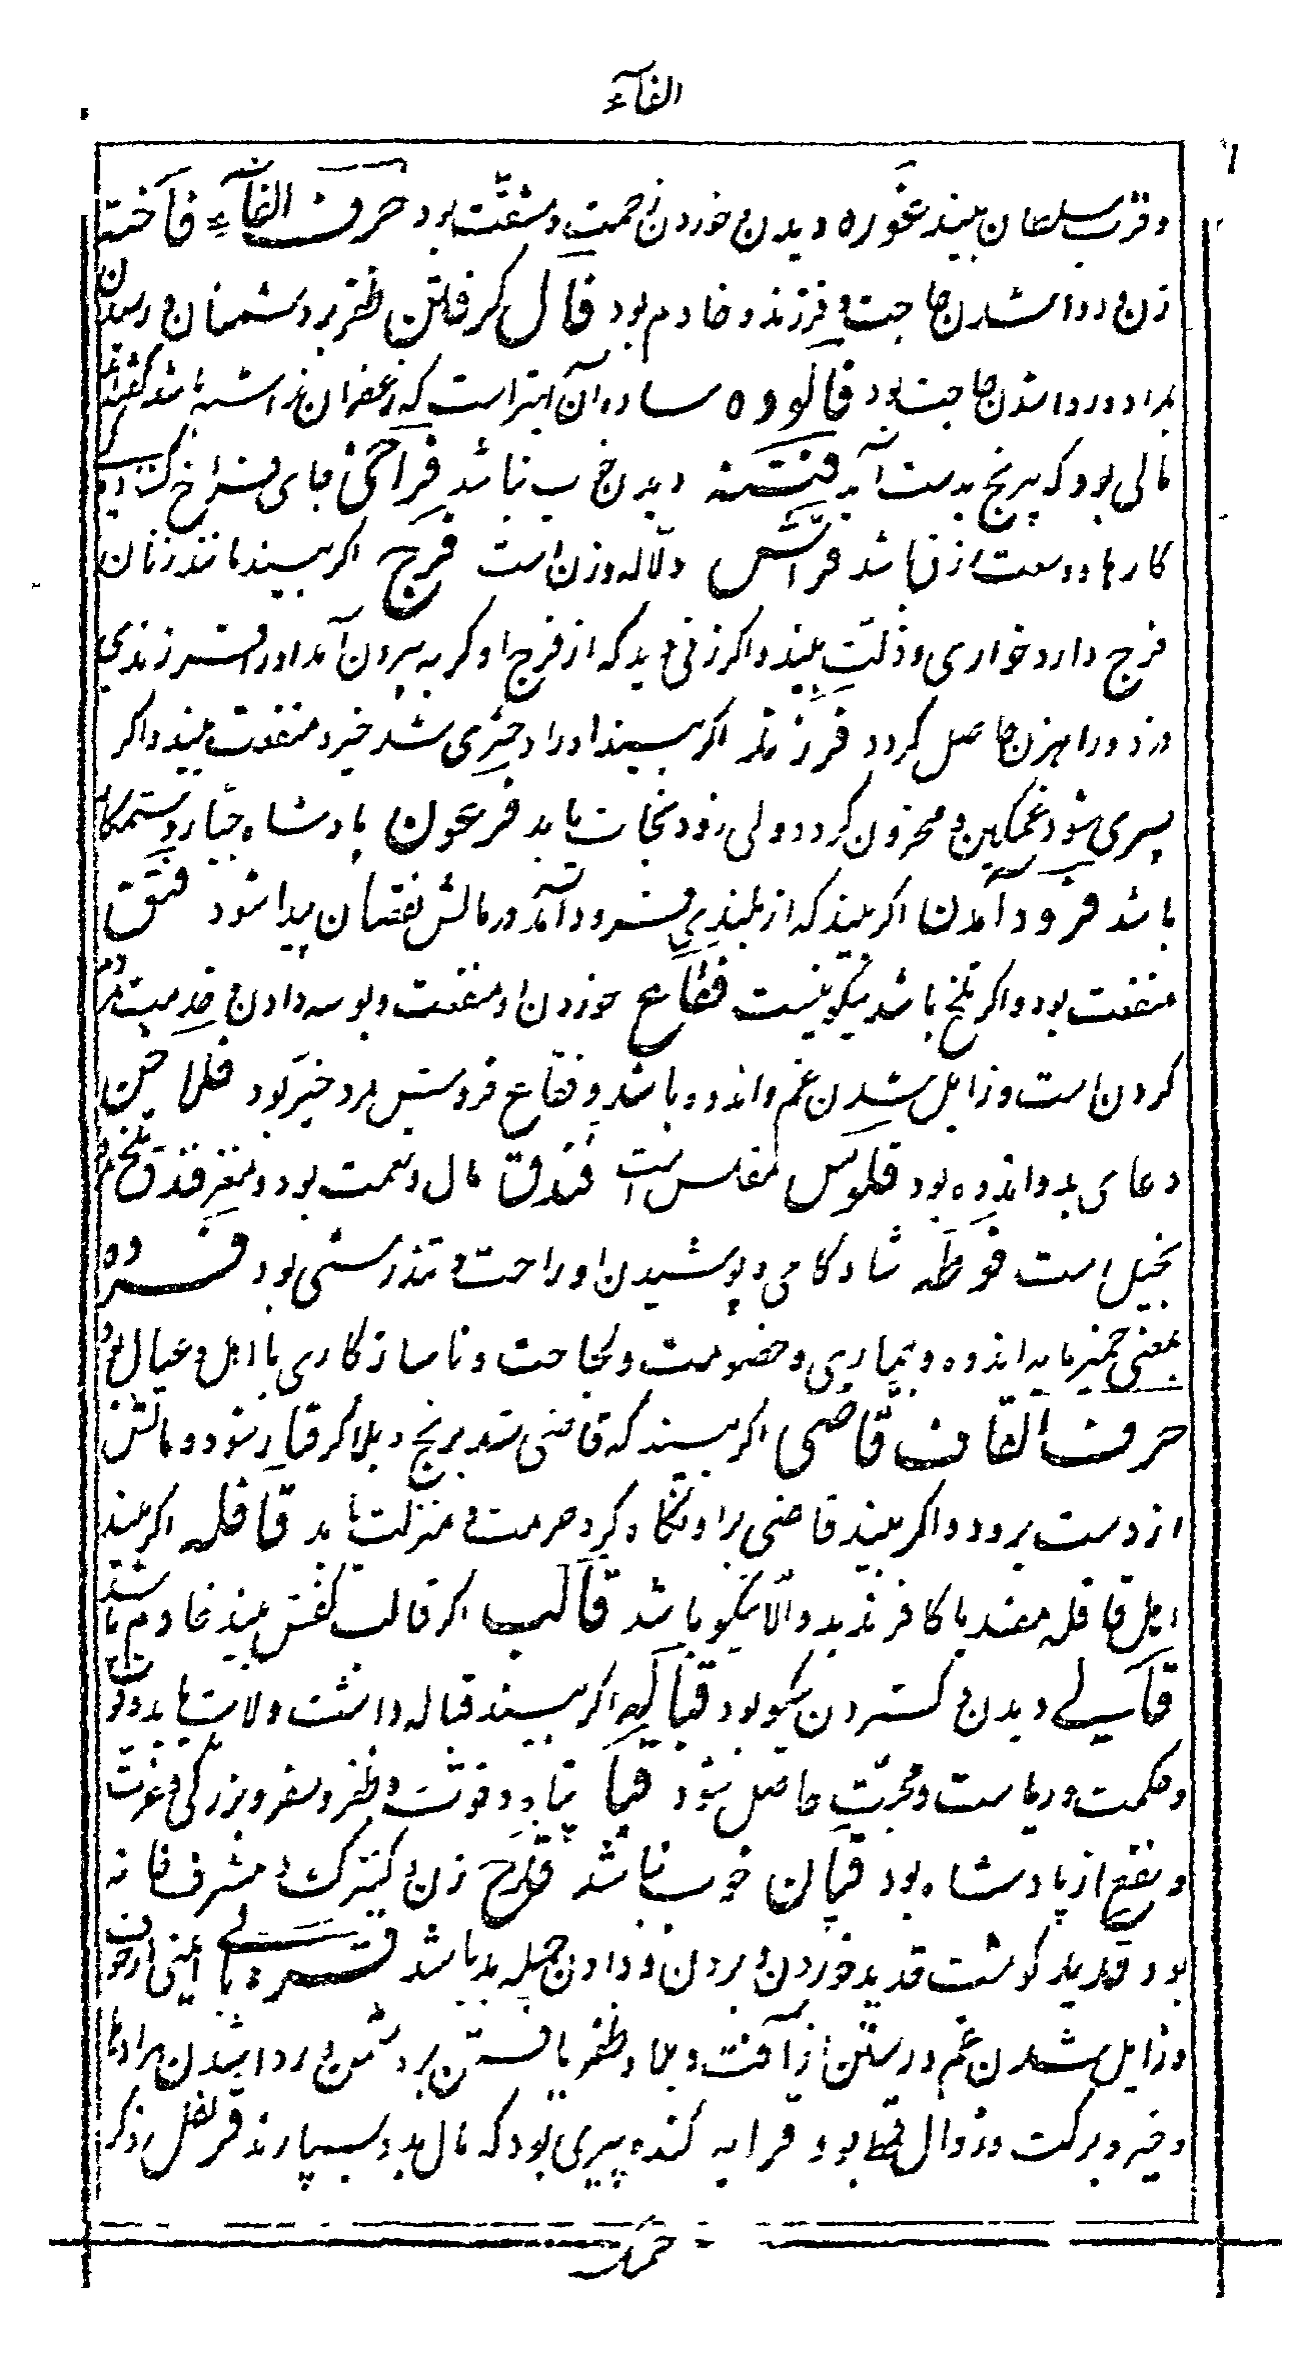 الفآء
و قرب سلطان بیند غوره دیدن و خوردن زحمت و مشقّت بود حرف الفآء فاخته
زن و روا شدن حاجت و فرزند و خادم بود فال گرفتن ظفر بر دشمنان و رسیدن
بمراد و روا شدن حاجت بود فالوده ساده آن بهتر است که زعفران نداشته باشد
مالی بود که برنج بدست آید فتنه دیدن خوب نباشد فراخی جای فراخ
کارها و وسعت رزق باشد فرّاش دلّاله و زن است فرج اگر بیند مانند زنان
فرج دارد خواری و ذلّت بیند و اگر زنی دید که از فرج او گربه بیرون آمد او را فرزندی
دزد و راهزن حاصل گردد فرزند اگر بیند او را دختری شد خیر و منفعت بیند و اگر
پسری شود غمگین و محزون گردد ولی زود نجات یابد فرعون پادشاه جبّار و ستمکار
باشد فرود آمدن اگر بیند که از بلندی فرود آمد در مالش نقصان پیدا شود فستق
منفعت بود و اگر تلخ باشد نیکو نیست فقاع خوردن او منفعت و بوسه دادن و خدمت مردم
کردن است و زایل شدن غم و اندوه باشد و فقاع فروش مرد خیر بود فلاخن
دعای بد و اندوه بود فلوس مفلسی است فندق مال و نعمت بود و مغز فندق تلخ
بخیل است فوطه شادکامی و پوشیدن او راحت و تندرستی بود
بمعنی خمیر مایه اندوه و بیماری و خصومت و لجاجت و ناسازکاری با اهل و عیال بود
حرف القاف قاضی اگر بیند که قاضی شد برنج و بلا گرفتار شود و مالش
از دست برود و اگر بیند قاضی بر او نگاه کرد حرمت و منزلت یابد قافله اگر بیند
اهل قافله مفسد یا کافرند بد و الّا نیکو باشد قالب اگر قالب کفش بیند خادم باشد
قالی دیدن و گستردن نیکو بود قباله اگر بیند قباله داشت ولایت یابد و قوت
و حکمت و ریاست و محبّت حاصل شود قبا پناه و قوّت و ظفر و سفر و بزرگی و عزت
و نفع از پادشاه بود قپان خوب نباشد قدح زن و کنیزک و مشرف خانه
بود قدید گوشت قدید خوردن و بردن و دادن جمله بد باشد ایمنی از خوف
و زایل شدن غم و رستن از آفت و بلا و ظفر یافتن بر دشمن و روا شدن مرادها
و خیر و برکت و زوال قحط بود قرابه گنده پیری بود که مال بدو بسپارند قرنفل ذکر